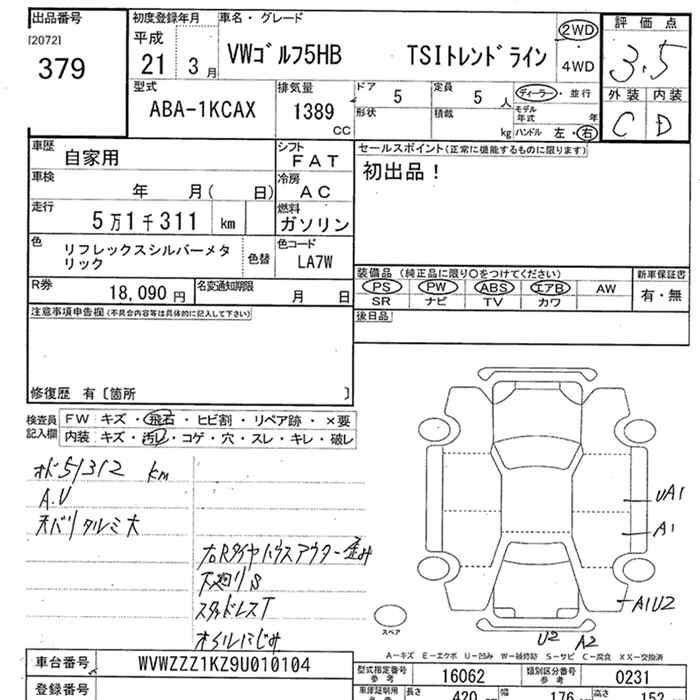 出品番号
[2072]
379
初度登録年月
平成
21 3月
車名・グレード
VWｺﾞﾙﾌ5HB TSIﾄﾚﾝﾄﾞﾗｲﾝ
2WD
4WD
評価点
3.5
外装 内装
C D
型式
ABA-1KCAX
排気量
1389
CC
ドア 5
定員 5 人
ディーラー・並行
形状
積載 kg
モデル年式 年
ハンドル 左・右
車歴 自家用
シフト FAT
車検 年 月( 日)
冷房 AC
走行 5万1千311 km
燃料 ガソリン
色 リフレックスシルバーメタリック
色替
色コード LA7W
R券 18,090円
名変通知期限 月 日
セールスポイント(正常に機能するものに限ります)
初出品！
装備品 (純正品に限り○をつけてください)
PS PW ABS エアB AW
SR ナビ TV カワ
新車保証書
有・無
後日品
注意事項申告欄(不具合内容等は具体的に記入して下さい)
修復歴 有〔箇所 〕
検査員記入欄
FW キズ・飛石・ヒビ割・リペア跡・×要
内装 キズ・汚レ・コゲ・穴・スレ・キレ・破レ
オド51312 km
A.U
天バリタルミ大
右Rタイヤハウスアウター歪み
下廻りS
スタッドレスT
オイルにじみ
UA1
A1
A1U2
U2 A2
スペア
A－キズ E－エクボ U－凹み W－補修跡 S－サビ C－腐食 XX－交換済
車台番号 WVWZZZ1KZ9U010104
登録番号
型式指定番号 参考 16062
類別区分番号 参考 0231
車庫証明用 参考 長さ 420 幅 176 高さ 152